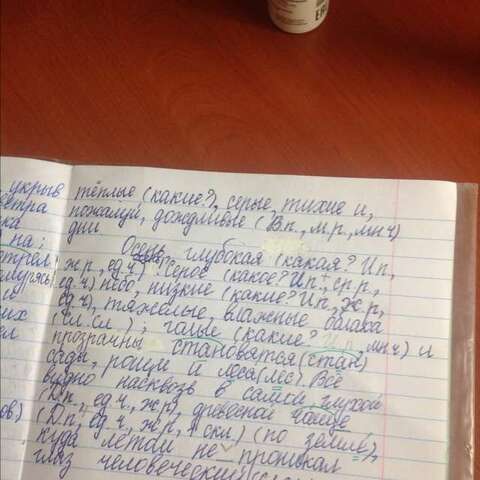 укрыв тёплые (какие?), серые, тихие и,
ветра пожалуй, дождливые (В.п., м.р., мн.ч)
ка дни
на; Осень глубокая (какая? И.п,
трел ж.р., ед.ч). Серое (какое? И.п., ср.р,
ед.ч) небо, низкие (какие? И.п, ж.р,
ед.ч), тяжелые, влажные облака
их (сл.сл.); голые (какие? И.п., мн.ч) и
ел прозрачны становятся (стан)
сады, рощи и леса (лес). Всё
видно насквозь в самой глухой
(Д.п, ед.ч., ж.р), древесной чаще
ов) (Д.п, ед.ч, ж.р, 1 скл.) (по земле),
куда летом не проникал
глаз человеческий